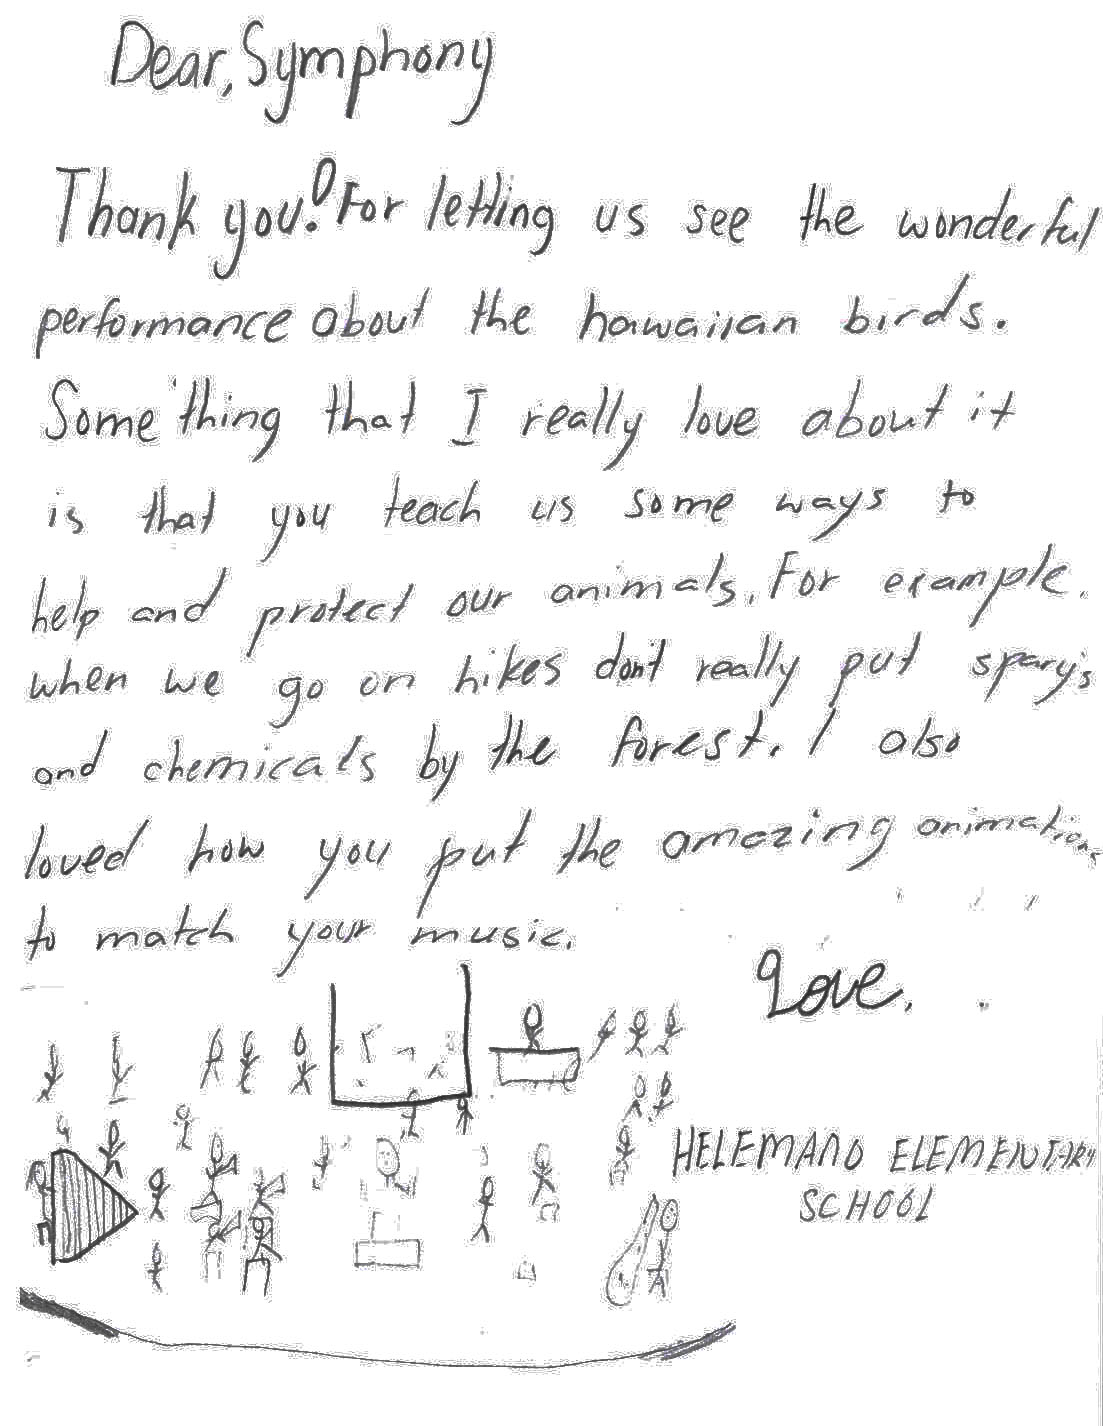 Dear, Symphony
Thank you! For letting us see the wonderful
performance about the hawaiian birds.
Something that I really love about it
is that you teach us some ways to
help and protect our animals. For example.
when we go on hikes don't really put spary's
and chemicals by the forest. I also
loved how you put the amazing animations
to match your music.
Love.
HELEMANO ELEMENTARY
SCHOOL